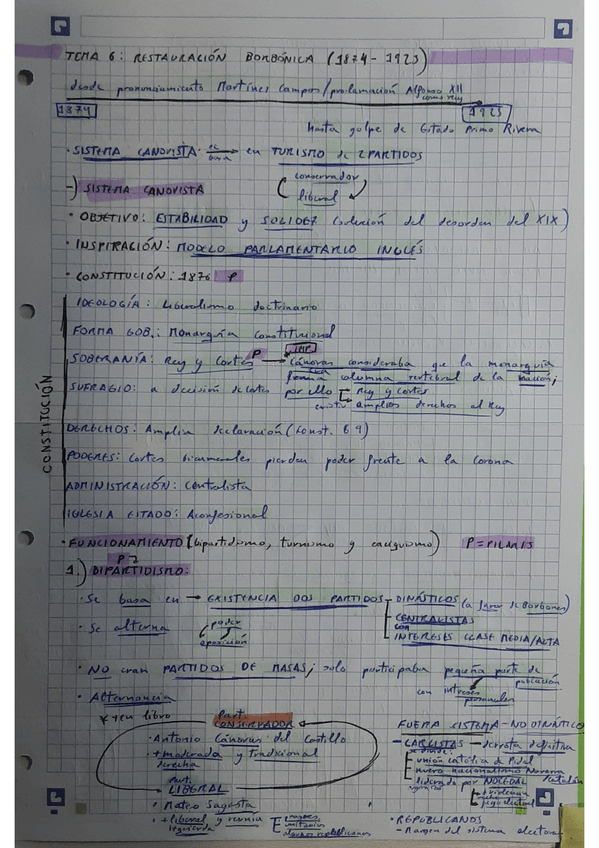 TEMA 6: RESTAURACIÓN BORBÓNICA (1874-1923)
desde pronunciamiento Martínez Campos/proclamación Alfonso XII
como rey
1874
1923
Hasta golpe de Estado Primo Rivera
· SISTEMA CANOVISTA se basa → en TURISMO de 2 PARTIDOS
conservador
liberal
-) SISTEMA CANOVISTA
· OBJETIVO: ESTABILIDAD y SOLIDEZ (solución del desorden del XIX)
· INSPIRACIÓN: MODELO PARLAMENTARIO INGLÉS
· CONSTITUCIÓN: 1876 P
CONSTITUCIÓN
IDEOLOGÍA: Liberalismo doctrinario
FORMA GOB.: Monarquía Constitucional
IMP
SOBERANÍA: Rey y Cortes P → Cánovas consideraba que la monarquía
forma columna vertebral de la nación;
SUFRAGIO: a decisión de Cortes por ello Rey y Cortes
amplios derechos al Rey
DERECHOS: Amplia declaración (Const. 69)
PODERES: Cortes bicamerales pierden poder frente a la Corona
ADMINISTRACIÓN: Centralista
IGLESIA ESTADO: Aconfesional
· FUNCIONAMIENTO (bipartidismo, turnismo y caciquismo) P = PILARES
P
1) BIPARTIDISMO:
· Se basa en → EXISTENCIA DOS PARTIDOS DINÁSTICOS (a favor de Borbones)
CENTRALISTAS
con
INTERESES CLASE MEDIA/ALTA
· Se alterna poder
oposición
· NO eran PARTIDOS DE MASAS; solo participaba pequeña parte de
población
con intereses personales
· Alternancia
* + en libro
Part.
CONSERVADOR
· Antonio Cánovas del Castillo
· + moderada y Tradicional
derecha
Part.
LIBERAL
· Mateo Sagasta
· + liberal y reunía
izquierda
progres.
unitarios
algunos republicanos
FUERA SISTEMA - NO DINÁSTICO
- CARLISTAS - derrota definitiva
se divide:
unión católica de Pidal
nuevo nacionalismo Navarra
Catalán
liderada por NOCEDAL
+ violencia
juego electoral
· REPUBLICANOS
- Margen del sistema electoral